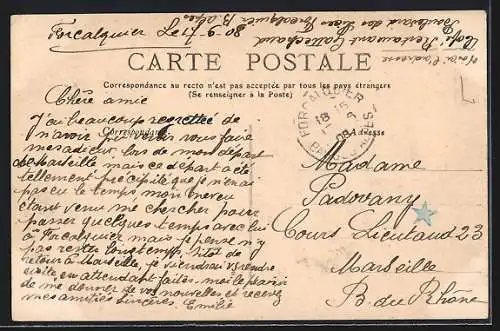 Forcalquier Le 17-9-08
CARTE POSTALE
Correspondance au recto n'est pas acceptée par tous les pays étrangers
(Se renseigner à la Poste)
Correspondance
Adresse
FORCALQUIER
Chère amie
J'ai beaucoup regretté de
n'avoir pu venir vous faire
mes adieux, lors de mon départ
de Marseille mais ce départ a été
tellement précipité que je n'ai
pas eu le temps mon neveu
étant venu me chercher pour
passer quelques temps avec lui
à Forcalquier mais je pense n'y
pas rester longtemps. Sitôt de
retour à Marseille, je viendrai vs rendre
visite en attendant faites-moi le plaisir
de me donner de vos nouvelles et recevez
mes amitiés sincères. Emilie
Madame
Padovany
Cours Lieutaud 23
Marseille
B. du Rhône
Café Restaurant
Boulevard des Lices Forcalquier B. Alpes